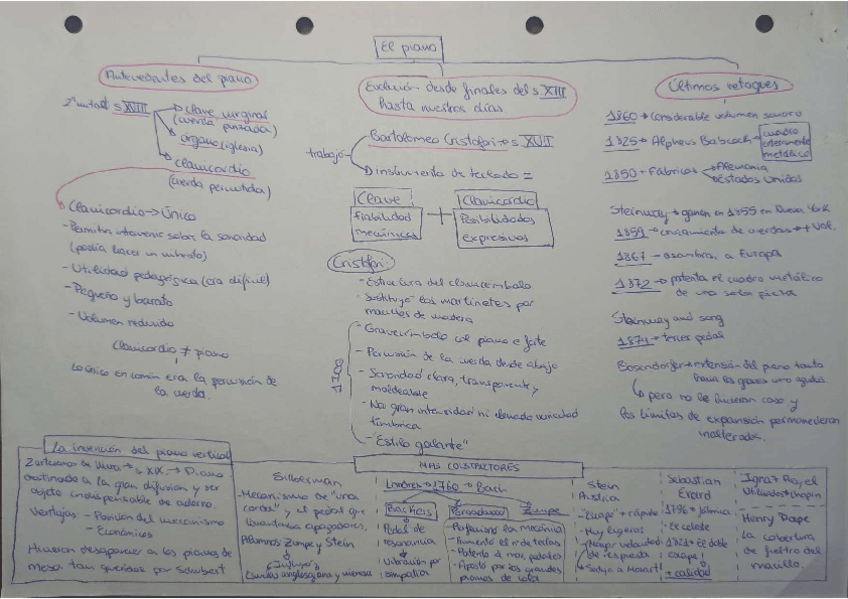 El piano
Antecedentes del piano
2ª mitad s XVIII → clave virginal
(cuerda punzada)
órgano (iglesia)
clavicordio
(cuerda percutida)
Clavicordio → Único
- Permitía intervenir sobre la sonoridad
(podía hacer un vibrato)
- Utilidad pedagógica (era difícil)
- Pequeño y barato
- Volumen reducido
Clavicordio ≠ piano
Lo único en común era la percusión de
la cuerda.
Evolución desde finales del s XIII
hasta nuestros días
Bartolomeo Cristofori → s XVII
trabajó
Instrumento de teclado =
Clave
fiabilidad
mecánica
+
Clavicordio
Posibilidades
expresivas
Cristofori
- Estructura del clavecímbalo
- Sustituyó los martinetes por
macillos de madera
1700
- Gravecímbolo col piano e forte
- Percusión de la cuerda desde abajo
- Sonoridad clara, transparente y
moldeable
- No gran intensidad ni elevada variedad
tímbrica
- "Estilo galante"
Últimos retoques
1860 → Considerable volumen sonoro
1825 → Alpheus Babcock → cuadro
enteramente
metálico
1850 → Fábricas → Alemania
Estados Unidos
Steinway → ganan en 1855 en Nueva York
1859 → cruzamiento de cuerdas → + Vol.
1867 → asombran a Europa
1872 → patenta el cuadro metálico
de una sola pieza
Steinway and song
1874 → tercer pedal
Bosendorfer → extensión del piano tanto
graves uno agudos
pero no le hicieron caso y
los límites de expansión permanecieron
inalterados.
La invención del piano vertical
s XIX → Piano
destinado a la gran difusión y ser
objeto indispensable de adorno.
Ventajas - Posición del mecanismo
- Económicos
Hicieron desaparecer a los pianos de
mesa tan queridos por Schubert
MÁS CONSTRUCTORES
Silberman
- Mecanismo de "una
corda" y el pedal que
levantaba apagadores.
Alumnos Zumpe y Stein
Influyó
Escuelas anglosajona y vienesa
Londres → 1760 → Bach
Backers
Pedal de
resonancia
Vibración por
simpatía
Broadwood
Zumpe
- Perfecciona la mecánica
- Aumentó el nº de teclas
- Patentó 2 pedales
- Apostó por los grandes
pianos de cola
Stein
Austria
"Escape" + rápido
Muy ligeros
Mayor velocidad
de respuesta
Sedujo a Mozart
Sebastian
Erard
1796 → fábrica
1821 → el doble
escape!
+ calidad
Ignaz Pleyel
Chopin
Henry Pape
La cobertura
de fieltro del
macillo.